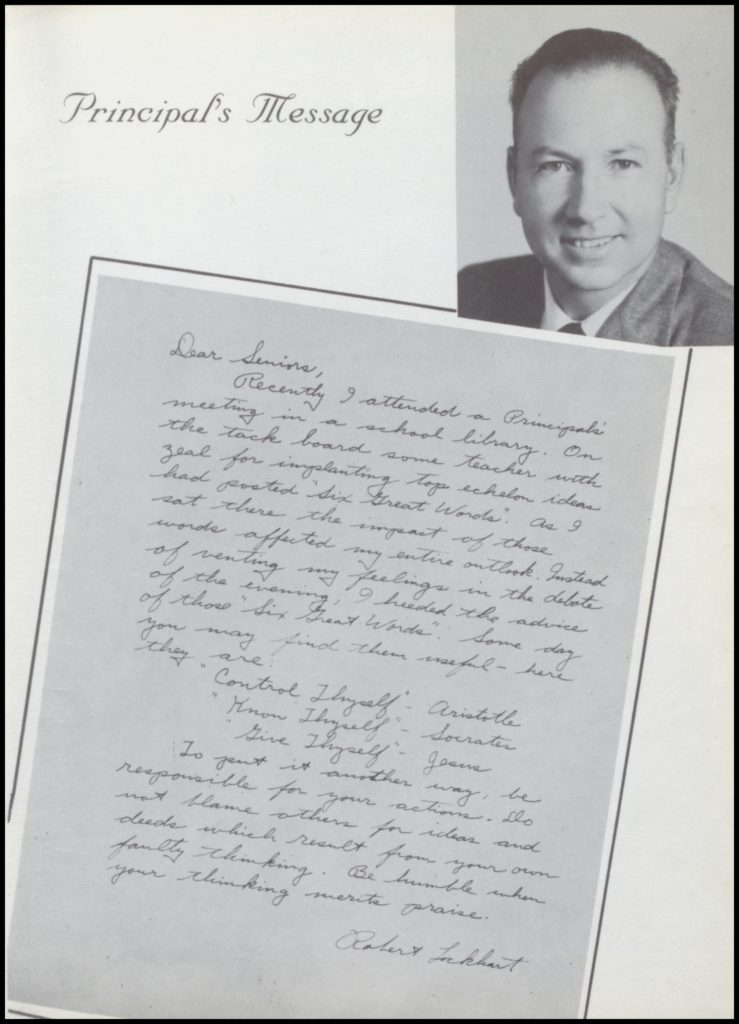 Principal's Message
Dear Seniors,
Recently I attended a Principals'
meeting in a school library. On
the tack board some teacher with
zeal for implanting top echelon ideas
had posted "Six Great Words". As I
sat there the impact of those
words affected my entire outlook. Instead
of venting my feelings in the debate
of the evening, I heeded the advice
of those "Six Great Words". Some day
you may find them useful - here
they are:
"Control Thyself" - Aristotle
"Know Thyself" - Socrates
"Give Thyself" - Jesus
To put it another way, be
responsible for your actions. Do
not blame others for ideas and
deeds which result from your own
faulty thinking. Be humble when
your thinking merits praise.
Robert Lockhart